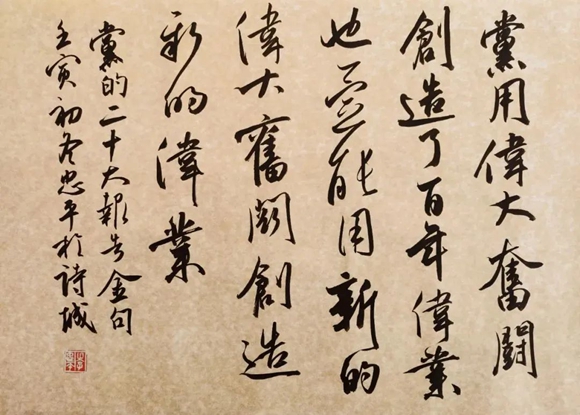 黨用偉大奮鬪
創造了百年偉業
也一定能用新的
偉大奮鬪創造
新的偉業
黨的二十大報告金句
壬寅初冬忠平於詩城